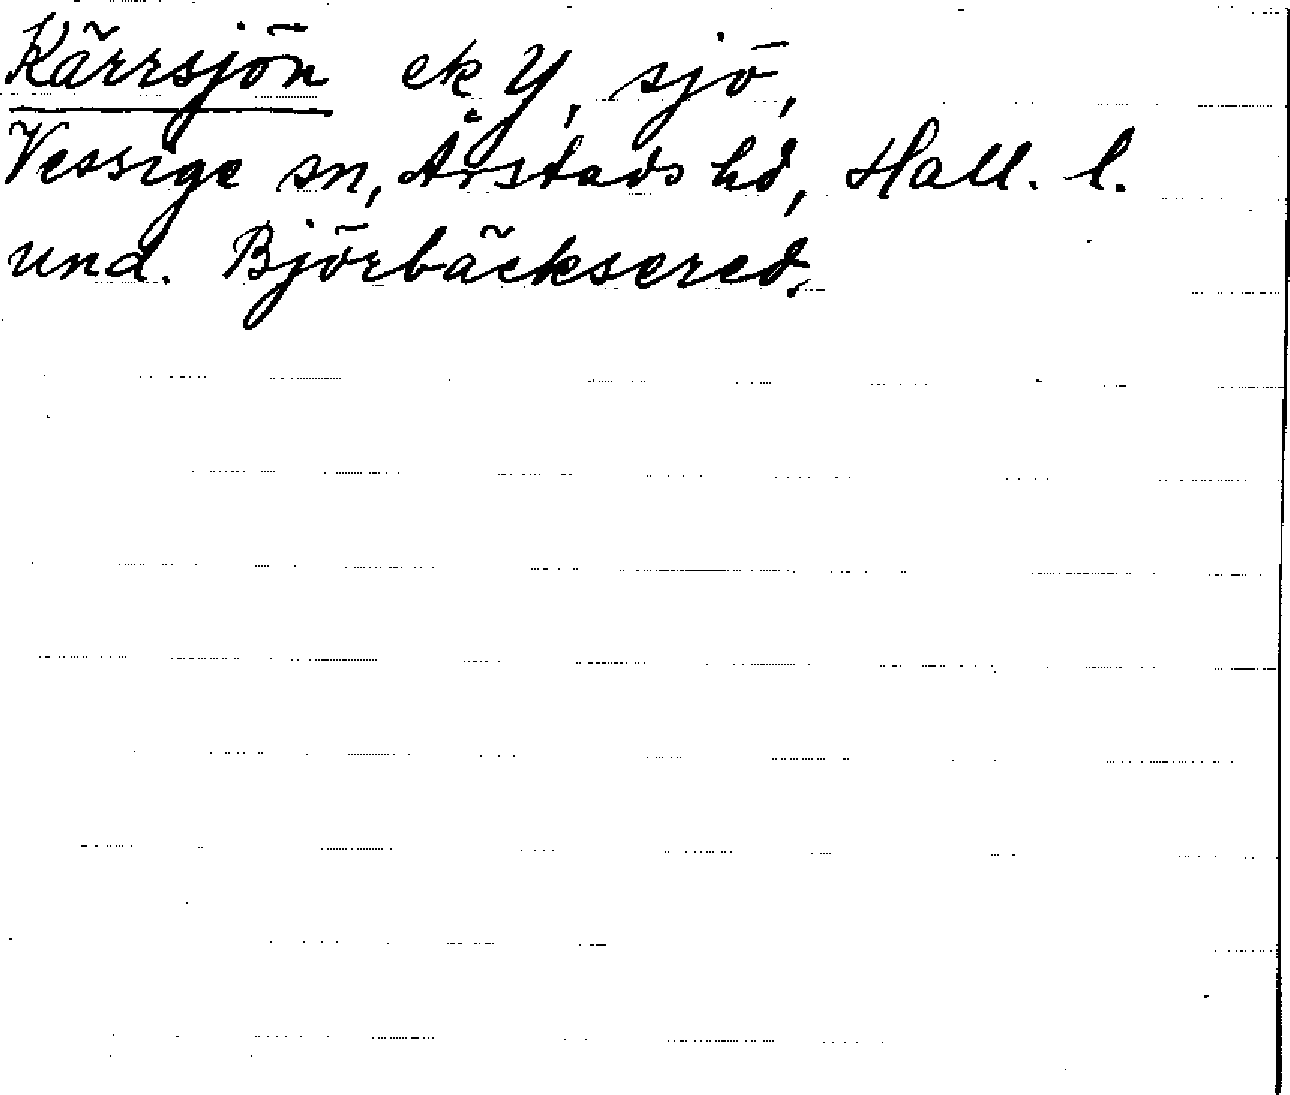 Kärrsjön ek Y, sjö,
Vessige sn, Årstads hd, Hall. l.
und. Björbäcksered.